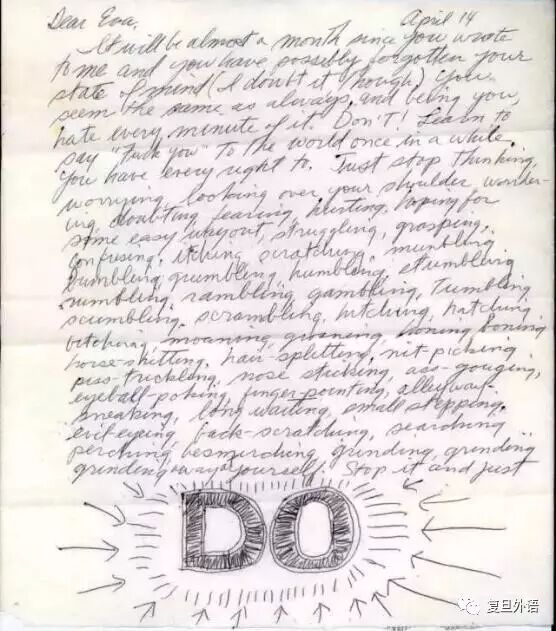 Dear Eva,                    April 14
It will be almost a month since you wrote
to me and you have possibly forgotten your
state of mind (I doubt it though). You
seem the same as always, and being you,
hate every minute of it. Don't! Learn to
say "Fuck You" to the world once in a while.
You have every right to. Just stop thinking,
worrying, looking over your shoulder, wonder-
ing, doubting, fearing, hurting, hoping for
some easy way out, struggling, grasping,
confusing, itching, scratching, mumbling,
bumbling, grumbling, humbling, stumbling,
numbling, rambling, gambling, tumbling,
scumbling, scrambling, hitching, hatching,
bitching, moaning, groaning, honing, boning,
horse-shitting, hair-splitting, nit-picking,
piss-trickling, nose sticking, ass-gouging,
eyeball-poking, finger-pointing, alleyway-
sneaking, long waiting, small stepping,
evil-eyeing, back-scratching, searching,
perching, besmirching, grinding, grinding
grinding away at yourself. Stop it and just
DO
复旦外语